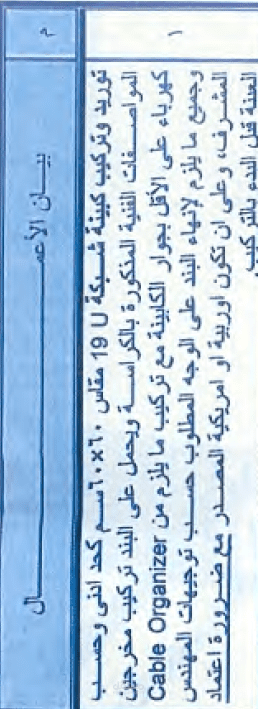 م
بيـان الأعمـــــــــــال
١
توريد وتركيب كبينة شـبكة 19 U مقاس ٦٠×٦٠ سـم كحد ادنى وحسب
المواصـفات الفنية المذكورة بالكراسـة ويحمل على البند تركيب مخرجين
كهرباء على الأقل بجوار الكابينة مع تركيب ما يلزم من Cable Organizer
وجميع ما يلزم لإنهاء البند على الوجه المطلوب حسـب توجيهات المهندس
المشـرف، وعلى ان تكون اوربية او امريكية المصـدر مع ضـرورة اعتماد
العينة قبل البدء بالتركيب